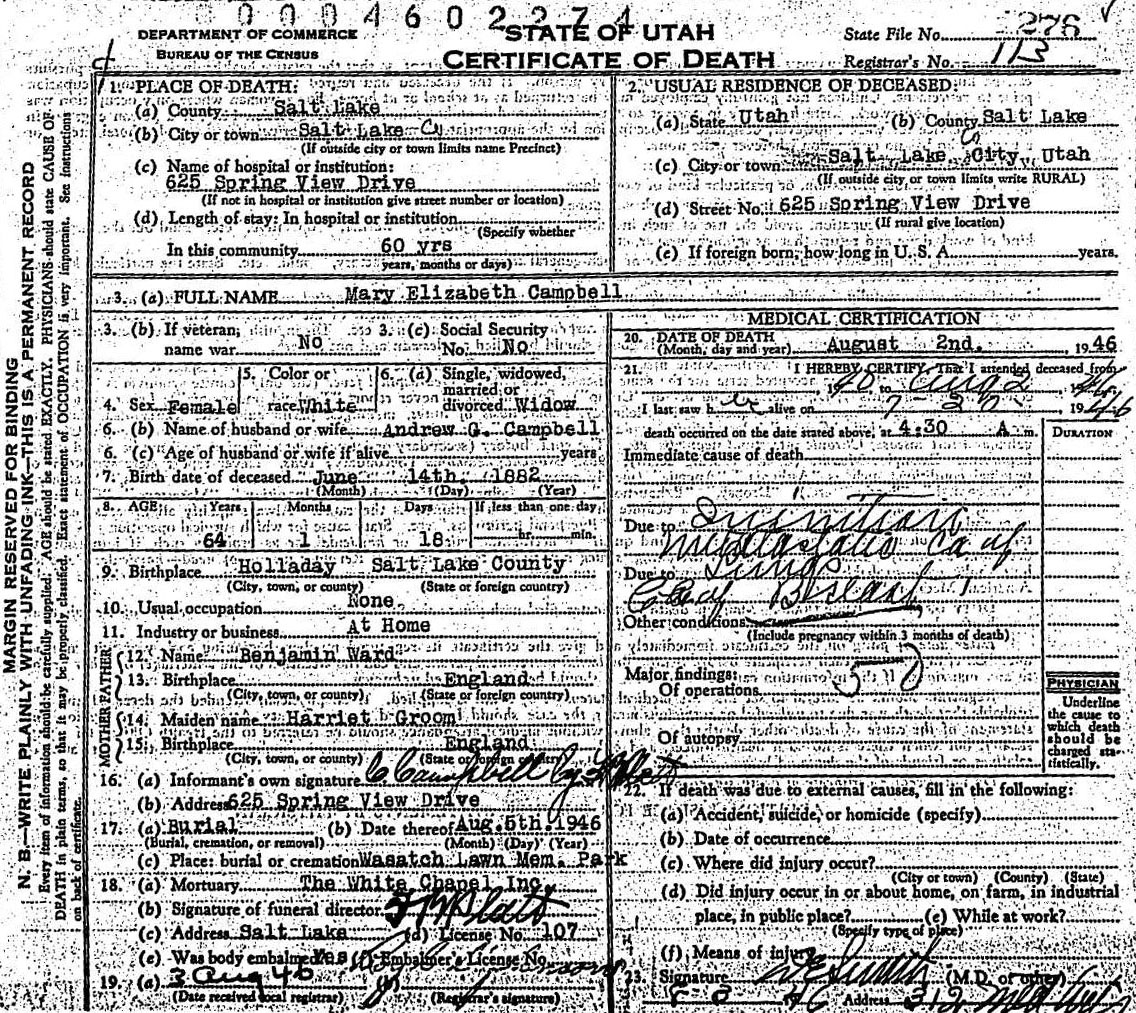 0 0 0 4 6 0 2 2 7 4
DEPARTMENT OF COMMERCE
BUREAU OF THE CENSUS
STATE OF UTAH
CERTIFICATE OF DEATH
State File No. 276
Registrar's No. 113
MARGIN RESERVED FOR BINDING
N. B.—WRITE PLAINLY WITH UNFADING INK—THIS IS A PERMANENT RECORD
Every item of information should be carefully supplied. AGE should be stated EXACTLY. PHYSICIANS should state CAUSE OF
DEATH in plain terms, so that it may be properly classified. Exact statement of OCCUPATION is very important. See instructions
on back of certificate.
1. PLACE OF DEATH:
(a) County Salt Lake
(b) City or town Salt Lake Co
(If outside city or town limits name Precinct)
(c) Name of hospital or institution:
625 Spring View Drive
(If not in hospital or institution give street number or location)
(d) Length of stay: In hospital or institution
(Specify whether
In this community 60 yrs
years, months or days)
2. USUAL RESIDENCE OF DECEASED:
(a) State Utah (b) County Salt Lake
(c) City or town Salt Lake City, Utah
Co
(If outside city or town limits write RURAL)
(d) Street No. 625 Spring View Drive
(If rural give location)
(e) If foreign born, how long in U. S. A. years.
3. (a) FULL NAME Mary Elizabeth Campbell
3. (b) If veteran, name war No
3. (c) Social Security No. No
4. Sex Female
5. Color or race White
6. (a) Single, widowed, married or divorced Widow
6. (b) Name of husband or wife Andrew G. Campbell
6. (c) Age of husband or wife if alive years
7. Birth date of deceased June 14th. 1882
(Month) (Day) (Year)
8. AGE Years Months Days If less than one day
64 1 18 hr. min.
9. Birthplace Holladay Salt Lake County
(City, town, or county) (State or foreign country)
10. Usual occupation None
11. Industry or business At Home
FATHER
12. Name Benjamin Ward
13. Birthplace England
(City, town, or county) (State or foreign country)
MOTHER
14. Maiden name Harriet Groom
15. Birthplace England
(City, town, or county) (State or foreign country)
16. (a) Informant's own signature C Campbell by
(b) Address 625 Spring View Drive
17. (a) Burial (b) Date thereof Aug. 5th. 1946
(Burial, cremation, or removal) (Month) (Day) (Year)
(c) Place: burial or cremation Wasatch Lawn Mem. Park
18. (a) Mortuary The White Chapel Inc.
(b) Signature of funeral director
(c) Address Salt Lake (d) License No. 107
(e) Was body embalmed? Yes (f) Embalmer's License No.
19. (a) 3 Aug 46 (b)
(Date received local registrar) (Registrar's signature)
MEDICAL CERTIFICATION
20. DATE OF DEATH
(Month, day and year) August 2nd. , 1946
21. I HEREBY CERTIFY, That I attended deceased from
1940 to Aug 2 1946
I last saw her alive on 7 - 20 1946
death occurred on the date stated above, at 4:30 A m.
DURATION
Immediate cause of death
Due to Inanition
Metastatic Ca of
Due to Lungs
Ca of Breast
Other conditions
(Include pregnancy within 3 months of death)
Major findings:
Of operations 50
Of autopsy
PHYSICIAN
Underline
the cause to
which death
should be
charged sta-
tistically.
22. If death was due to external causes, fill in the following:
(a) Accident, suicide, or homicide (specify)
(b) Date of occurrence
(c) Where did injury occur?
(City or town) (County) (State)
(d) Did injury occur in or about home, on farm, in industrial
place, in public place? (e) While at work?
(Specify type of place)
(f) Means of injury
23. Signature (M.D. or other)
46 Address 312